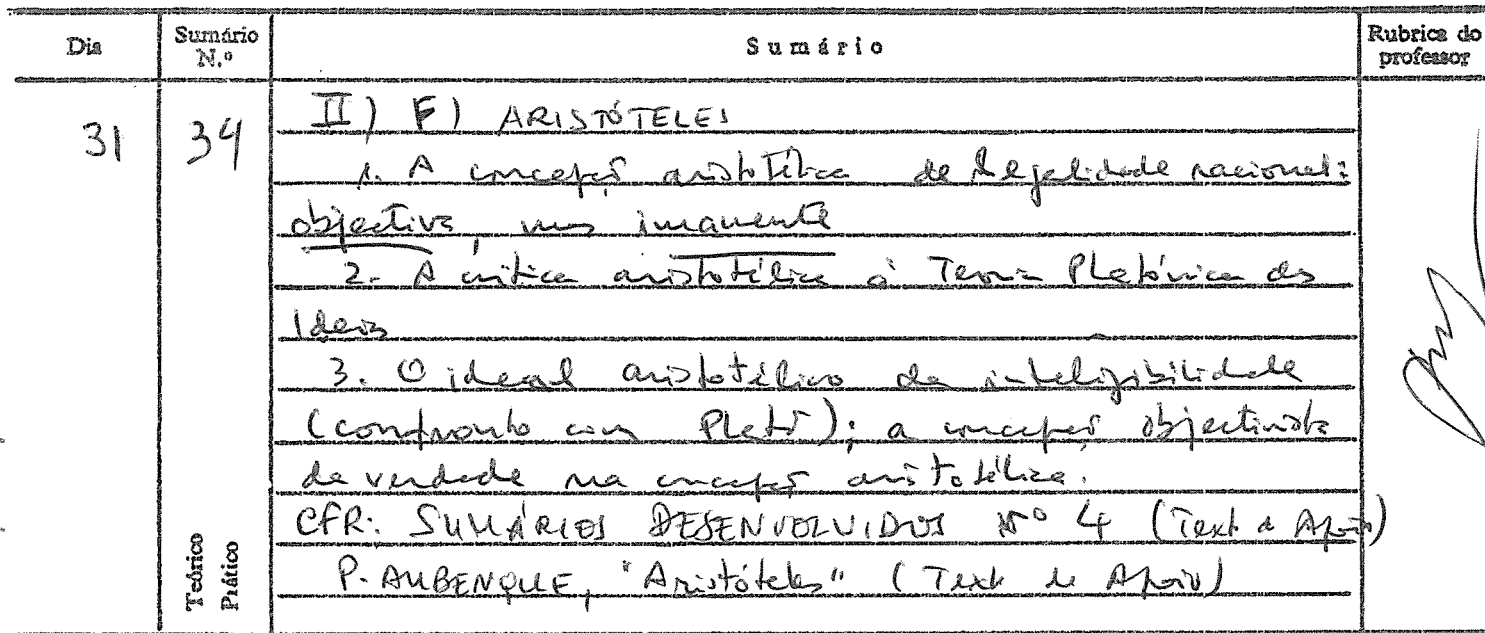 Dia
Sumário N.º
Sumário
Rubrica do professor
31
34
II) F) ARISTÓTELES
1. A concepção aristotélica de legalidade racional:
objectiva, mas imanente
2. A crítica aristotélica à Teoria Platónica das
Ideias
3. O ideal aristotélico da inteligibilidade
(confronto com Platão); a concepção objectivista
da verdade na concepção aristotélica.
CFR: SUMÁRIOS DESENVOLVIDOS Nº 4 (Text de Apoio)
P. AUBENQUE, "Aristóteles" (Text de Apoio)
Teórico
Prático